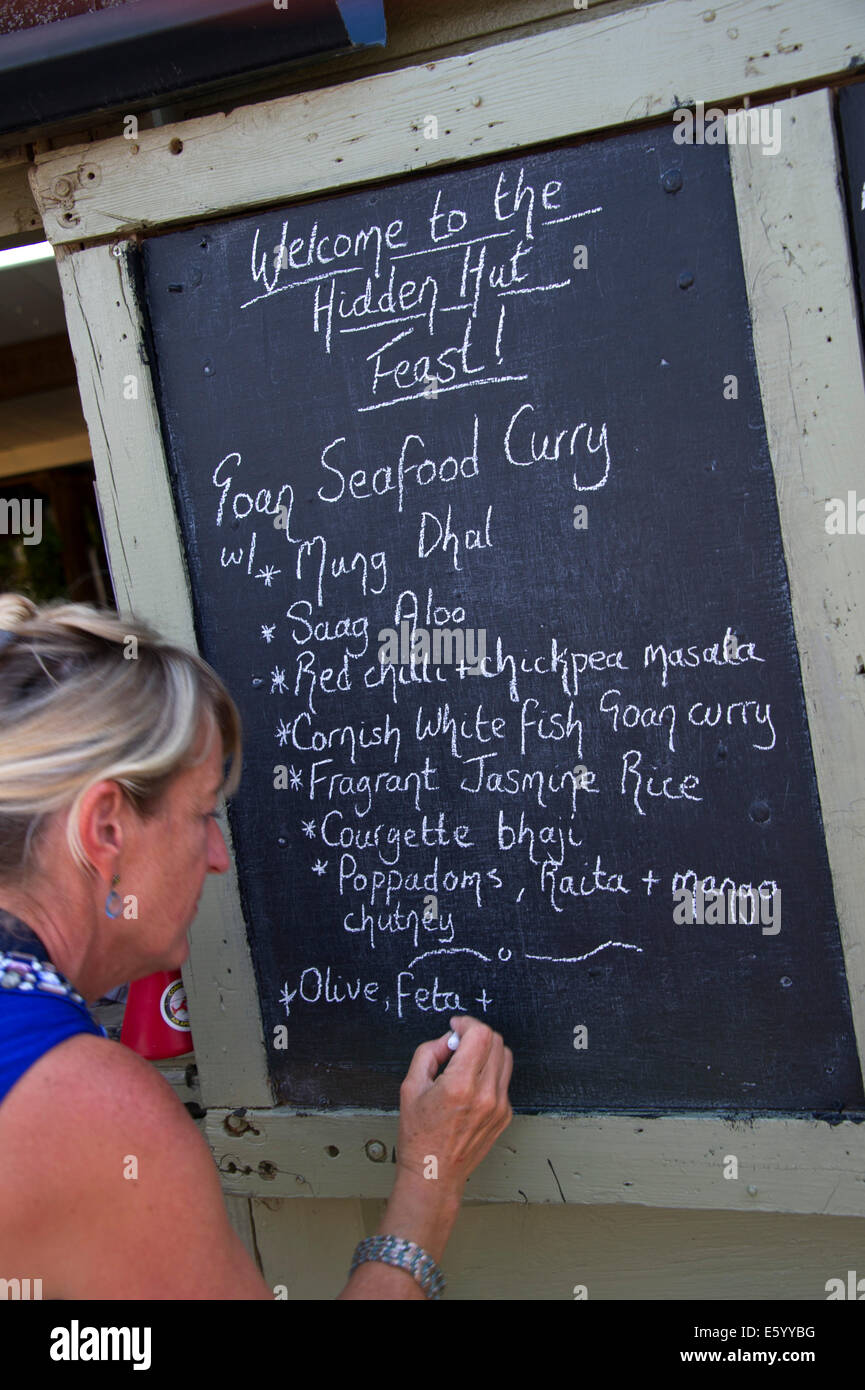 Welcome to the
Hidden Hut
Feast!
Goan Seafood Curry
w/ * Mung Dhal
* Saag Aloo
* Red chilli + chickpea masala
* Cornish White fish Goan curry
* Fragrant Jasmine Rice
* Courgette bhaji
* Poppadoms, Raita + mango
chutney
* Olive, feta +
alamy
Image ID: E5YYBG
www.alamy.com